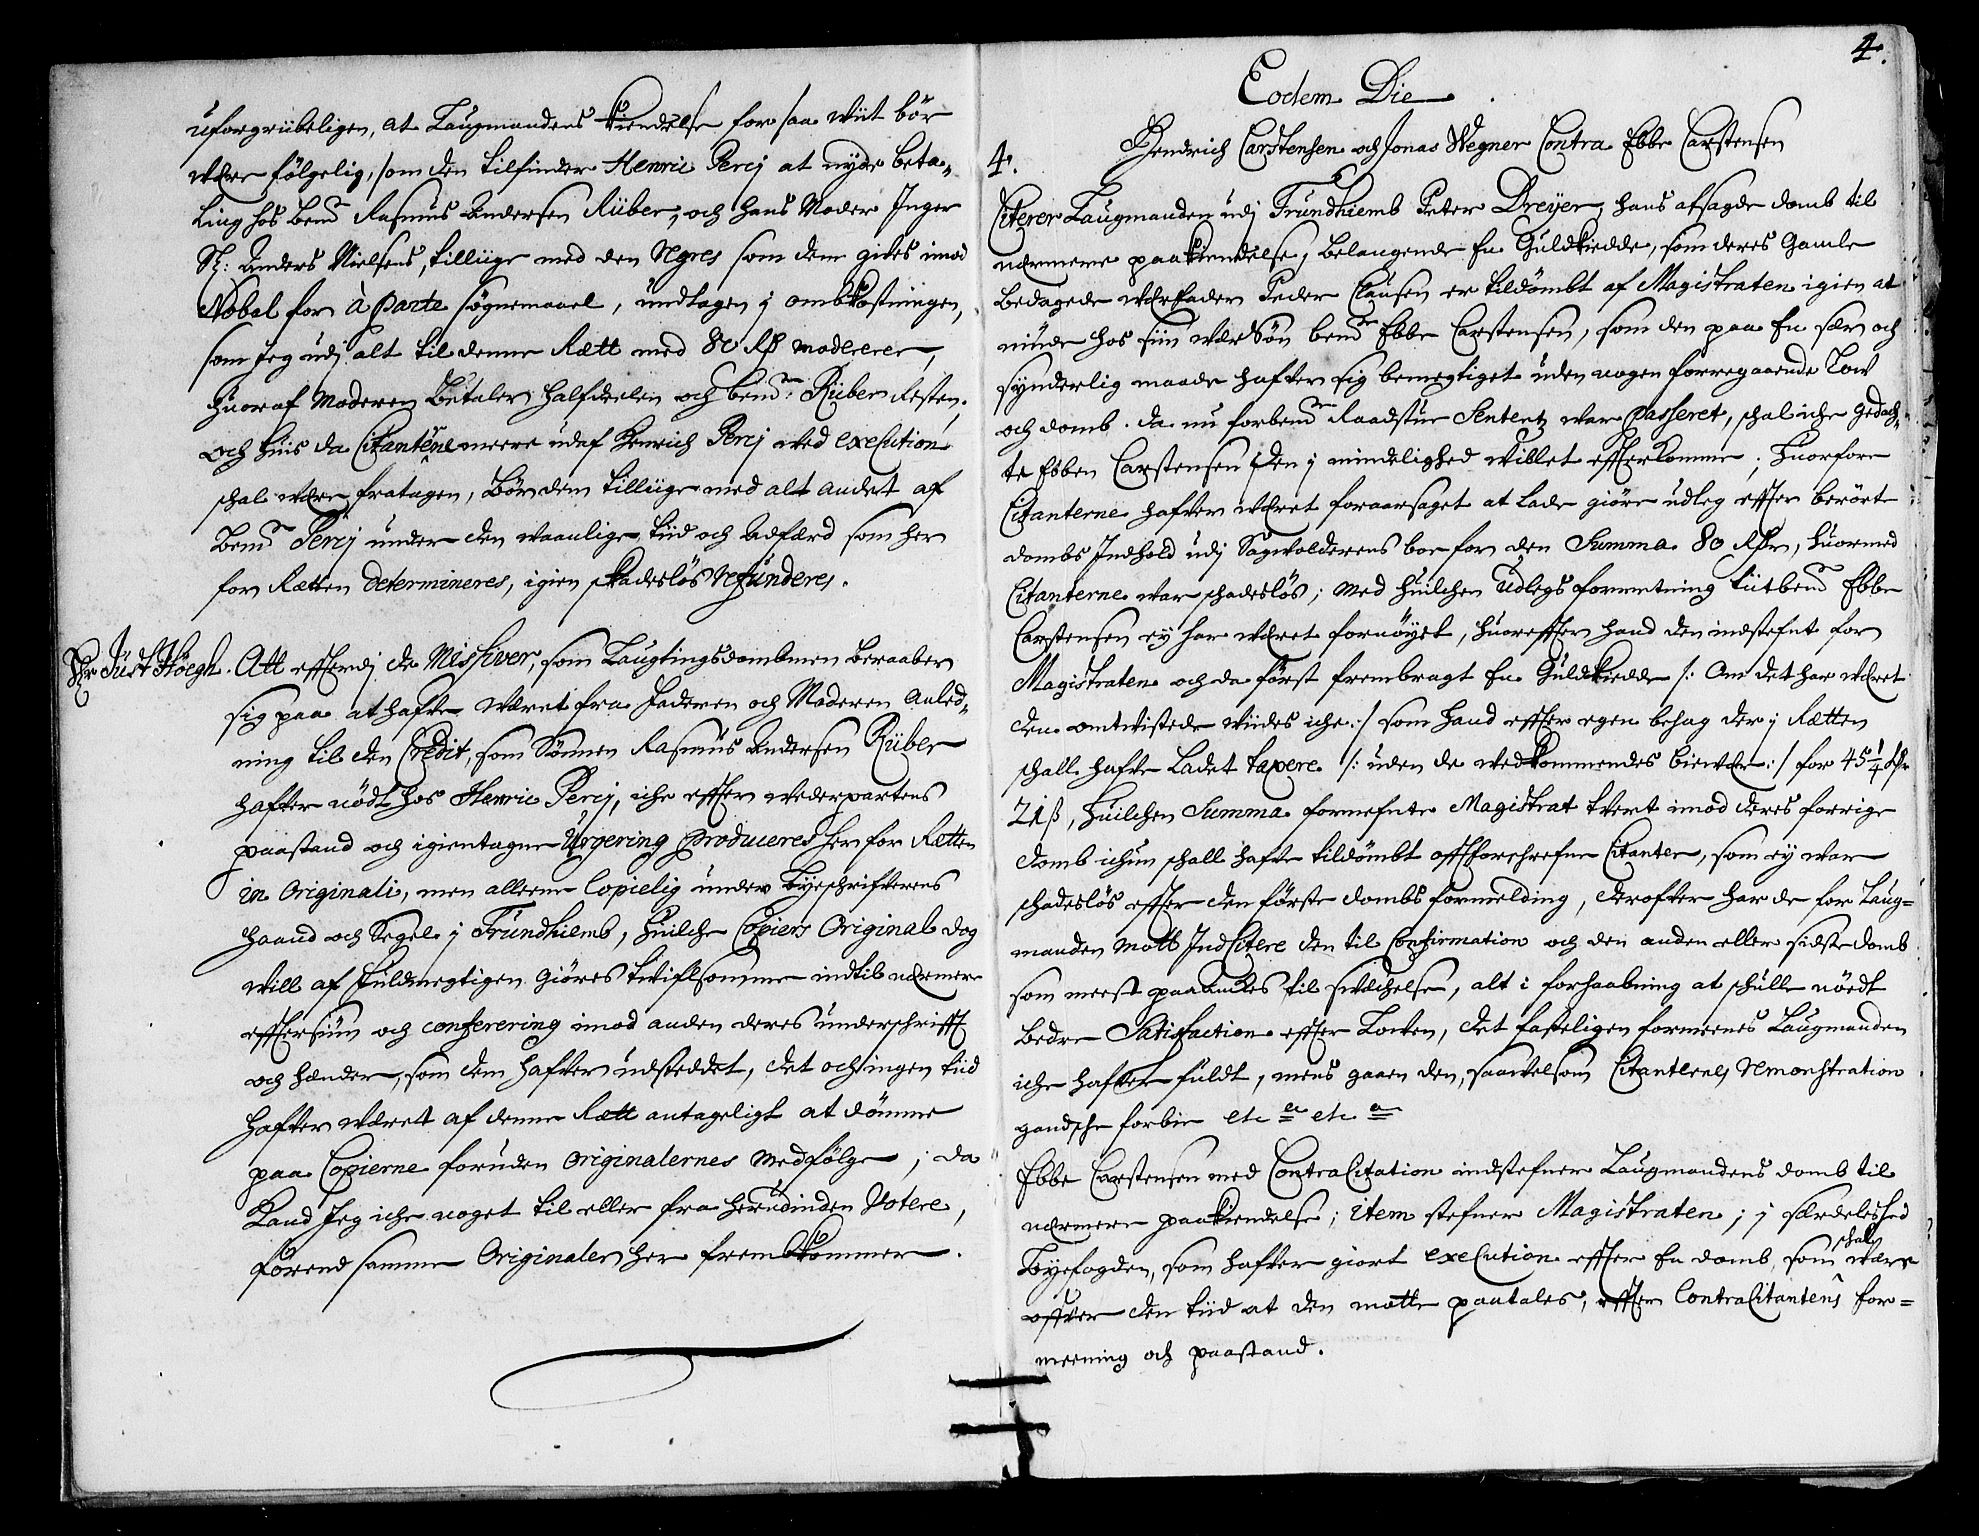 uforgribeligen, at Laugmandens Kiendelse for saa wiit bör
være fölgelig, som den tilfinder Henric Percj at nyde beta-
ling hos bemte Rasmus Andersen Rüber, och hans Moder Inger
Sl: Anders Nielsens, tilliige med den Regres som dem gifves imod
Nobel for à parte sögnemaael, undtagen j ombkostningen,
som jeg udj alt til denne Rætt med 80 Rdr modererer,
huoraf Moderen betaler halfdeelen och bemte Rüber Resten.
och huis da Citanterne meere udaf Henrich Percj ved execution
schal være fratagen, bör dem tilliige med alt andet af
bemte Percj under den vaanlige tiid och Adfærd som her
for Rætten determineres, igien skadeslös refunderes.
Hr Just Höegh. Att efterdj de Missiver, som Laugtingsdombmen beraaber
sig paa at hafve været fra Faderen och Moderen Anled-
ning til den Credit, som Sönnen Rasmus Andersen Rüber
hafver nödt hos Henric Percj, iche efter wederpartens
paastand och igientagne Urgering produceres her for Rætten
in Originali, men alleene Copielig under Byeschrifverens
haand och Segel j Trundhiemb, huilche Copiers Original dog
will af fuldmegtigen giöres twiflsomme indtil nærmere
eftersiun och conferering imod anden deres underschrifft
och hænder, som dem hafver udsteddet, det och ingen tiid
hafver været af denne Rætt antageligt at dömme
paa Copierne foruden originalernes medfölge; da
Kand Jeg iche noget til eller fra herudinden Votere,
förend samme Originaler her frembkommer.
4.
Eodem Die
Hendrich Carstensen och Jonas Wegner Contra Ebbe Carstensen
4.
Citerer Laugmanden udj Trundhiemb Peter Dreyer, hans afsagde domb til
nærmere paakiendelse, belangende En Guldkiedde, som deres Gamle
bedagede værfader Peder Clausen er tildömbt af Magistraten igien at
niude hos siin wærSön bemte Ebbe Carstensen, som den paa En sær och
synderlig maade hafver sig bemegtiget uden nogen forregaaende Low
och domb. da nu forbemte Raadstue Sententz war passeret, schal iche gedach-
te Ebben Carstensen den j mindelighed willet efterkomme; Huorfore
Citanterne hafver været foraarsaget at lade giöre udleg efter berört
dombs Indhold udj Sagwolderens boe for den Summa 80 Rdr, huormed
Citanterne war schadeslös; med huilchen Udlegs forretning titbemte Ebbe
Carstensen ey har været fornöyet, huorefter hand den indstefnt for
Magistraten och da först frembragt En Guldkiedde /: Om det har været
den omtvistede viides iche :/ som hand efter egen behag der j Rætten
schall hafve Ladet taxere /: uden de vedkommendes biewær :/ for 45 1/4 Rdr
21 ß, huilchen Summa fornefnte Magistrat tvert imod deres forrige
domb ichun schall hafve tildömbt offtforschrefne Citanter, som ey war
schadeslös efter den förste dombs formelding, derofver har de for Laug-
manden mott IndCitere den til Confirmation och den anden eller sidste domb
som meest paaanckes til svæchelse, alt i forhaabning at schulle nöedt
bedre Satisfaction efter Lowen, det fasteligen formeenes Laugmanden
iche hafver fuldt, mens gaaen den, saavelsom Citanternes remonstration
gandsche forbie etc. etc.
Ebbe Carstensen med ContraCitation indstefner Laugmandens domb til
nærmere paakiendelse; item stefner Magistraten; j særdeleshed
Byefogden, som hafver giort execution efter En domb, som schal være
offver den tiid at den motte paatales, efter ContraCitantens for-
meening och paastand.